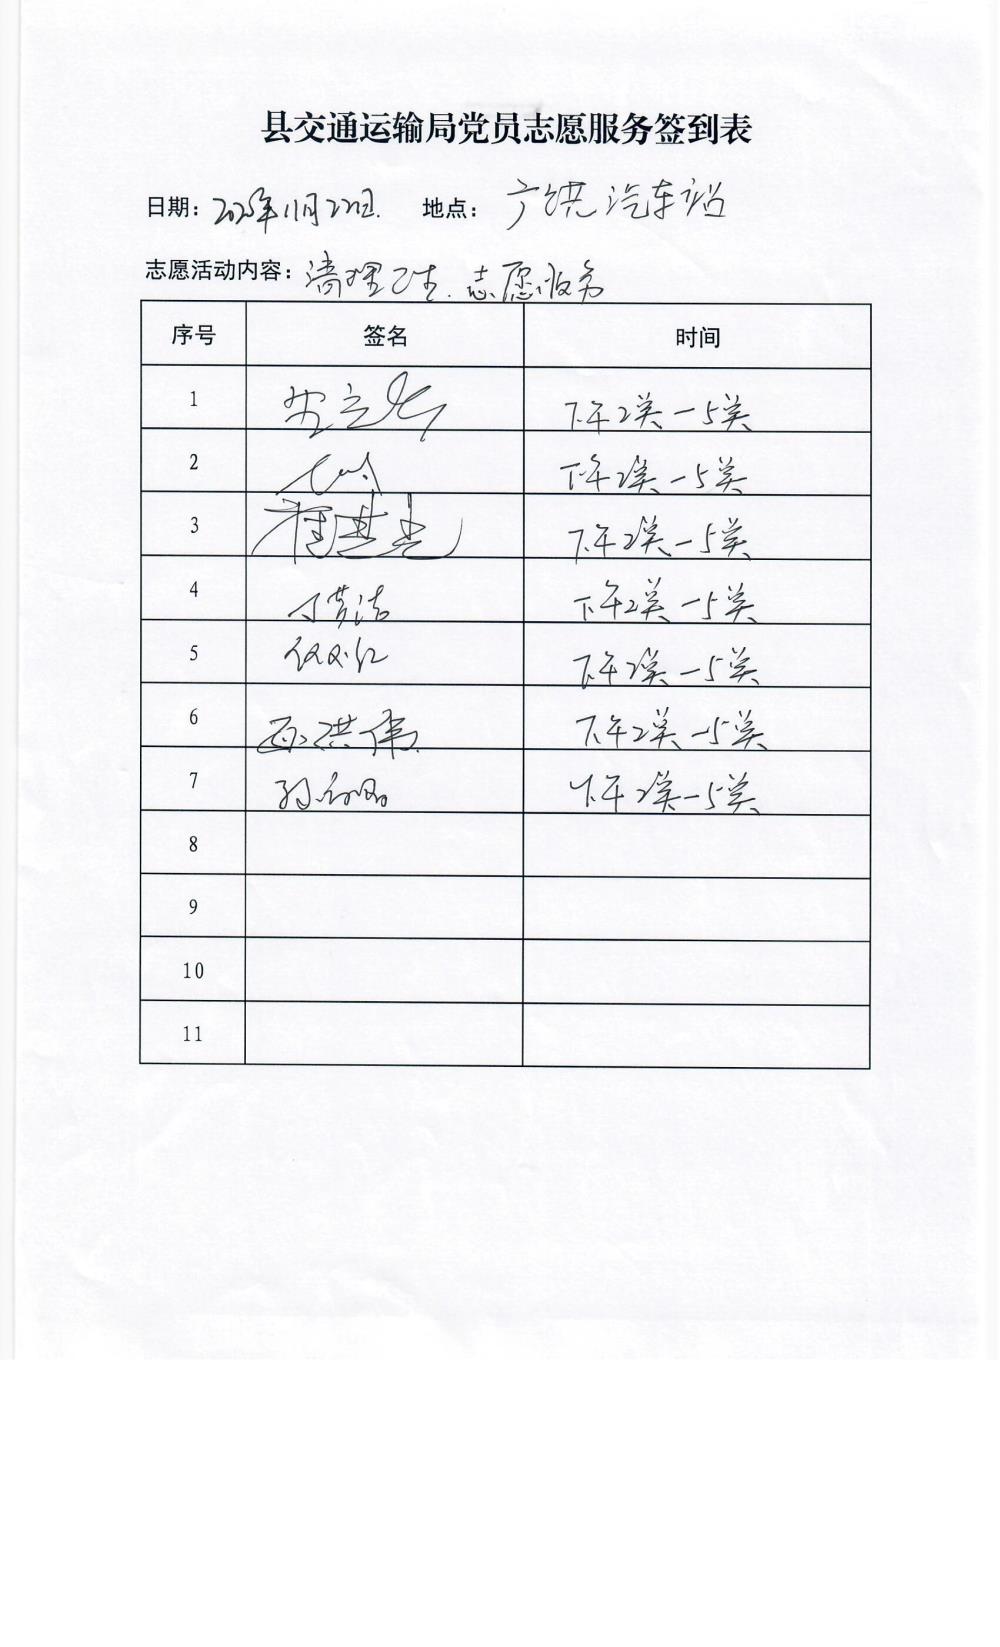 县交通运输局党员志愿服务签到表
日期：2025年11月22日. 地点：广饶汽车站
志愿活动内容：清理卫生.志愿服务
序号 签名 时间
1 下午2关—5关
2 下午2关—5关
3 崔进忠 下午2关—5关
4 下午2关—5关
5 下午2关—5关
6 洪伟 下午2关—5关
7 下午2关—5关
8
9
10
11